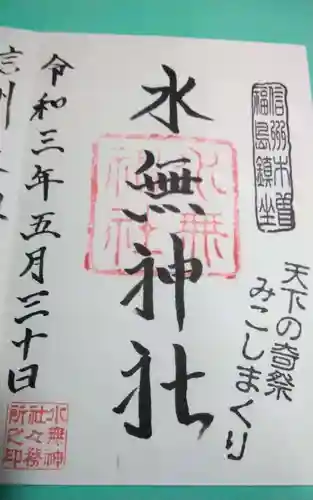 信州木曽
福島鎮座
天下の奇祭
みこしまくり
水無神社
水無神社
令和三年五月三十日
水無神
社々務
所之印